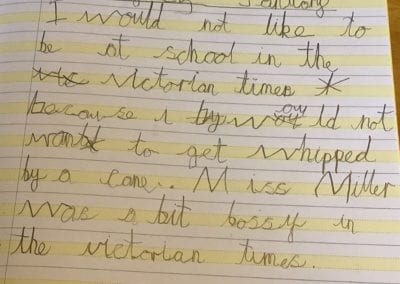 I would not like to
be at school in the
victorian times *
because i would not
want to get whipped
by a cane.. Miss Miller
was a bit bossy in
the victorian times.